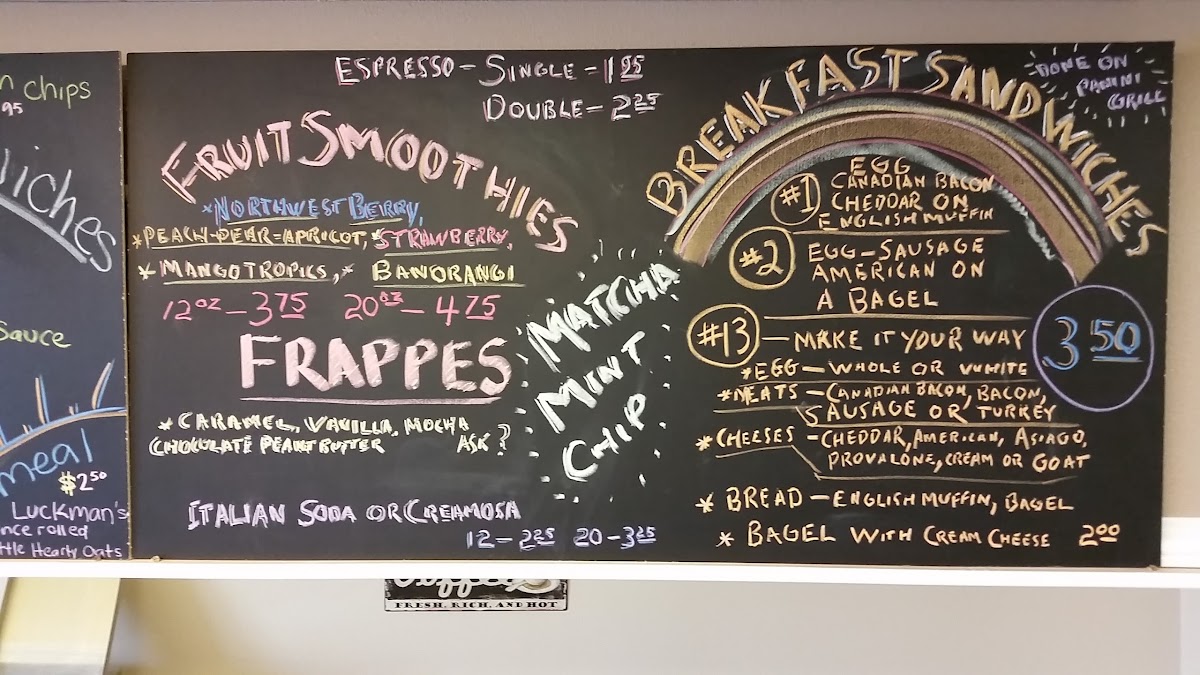 chips
95
iches
Sauce
meal
$2.50
Luckman's
nce rolled
ttle Hearty Oats
ESPRESSO - SINGLE - 1 95
DOUBLE - 2 25
FRUIT SMOOTHIES
*NORTHWEST BERRY,
*PEACH-PEAR-APRICOT, *STRAWBERRY,
* MANGO TROPICS, * BANORANGI
12oz - 3 75 20oz - 4 75
FRAPPES
* CARAMEL, VANILLA, MOCHA
CHOCOLATE PEANTBUTTER ASK?
ITALIAN SODA OR CREAMOSA
12 - 2 25 20 - 3 25
MATCHA
MINT
CHIP
BREAKFAST SANDWICHES
DONE ON
PANINI
GRILL
#1 EGG
CANADIAN BACON
CHEDDAR ON
ENGLISH MUFFIN
#2 EGG - SAUSAGE
AMERICAN ON
A BAGEL
#13 - MAKE IT YOUR WAY
3 50
*EGG - WHOLE OR WHITE
*MEATS - CANADIAN BACON, BACON,
SAUSAGE OR TURKEY
* CHEESES - CHEDDAR, AMERICAN, ASIAGO,
PROVALONE, CREAM OR GOAT
* BREAD - ENGLISH MUFFIN, BAGEL
* BAGEL WITH CREAM CHEESE 2 00
FRESH, RICH, AND HOT